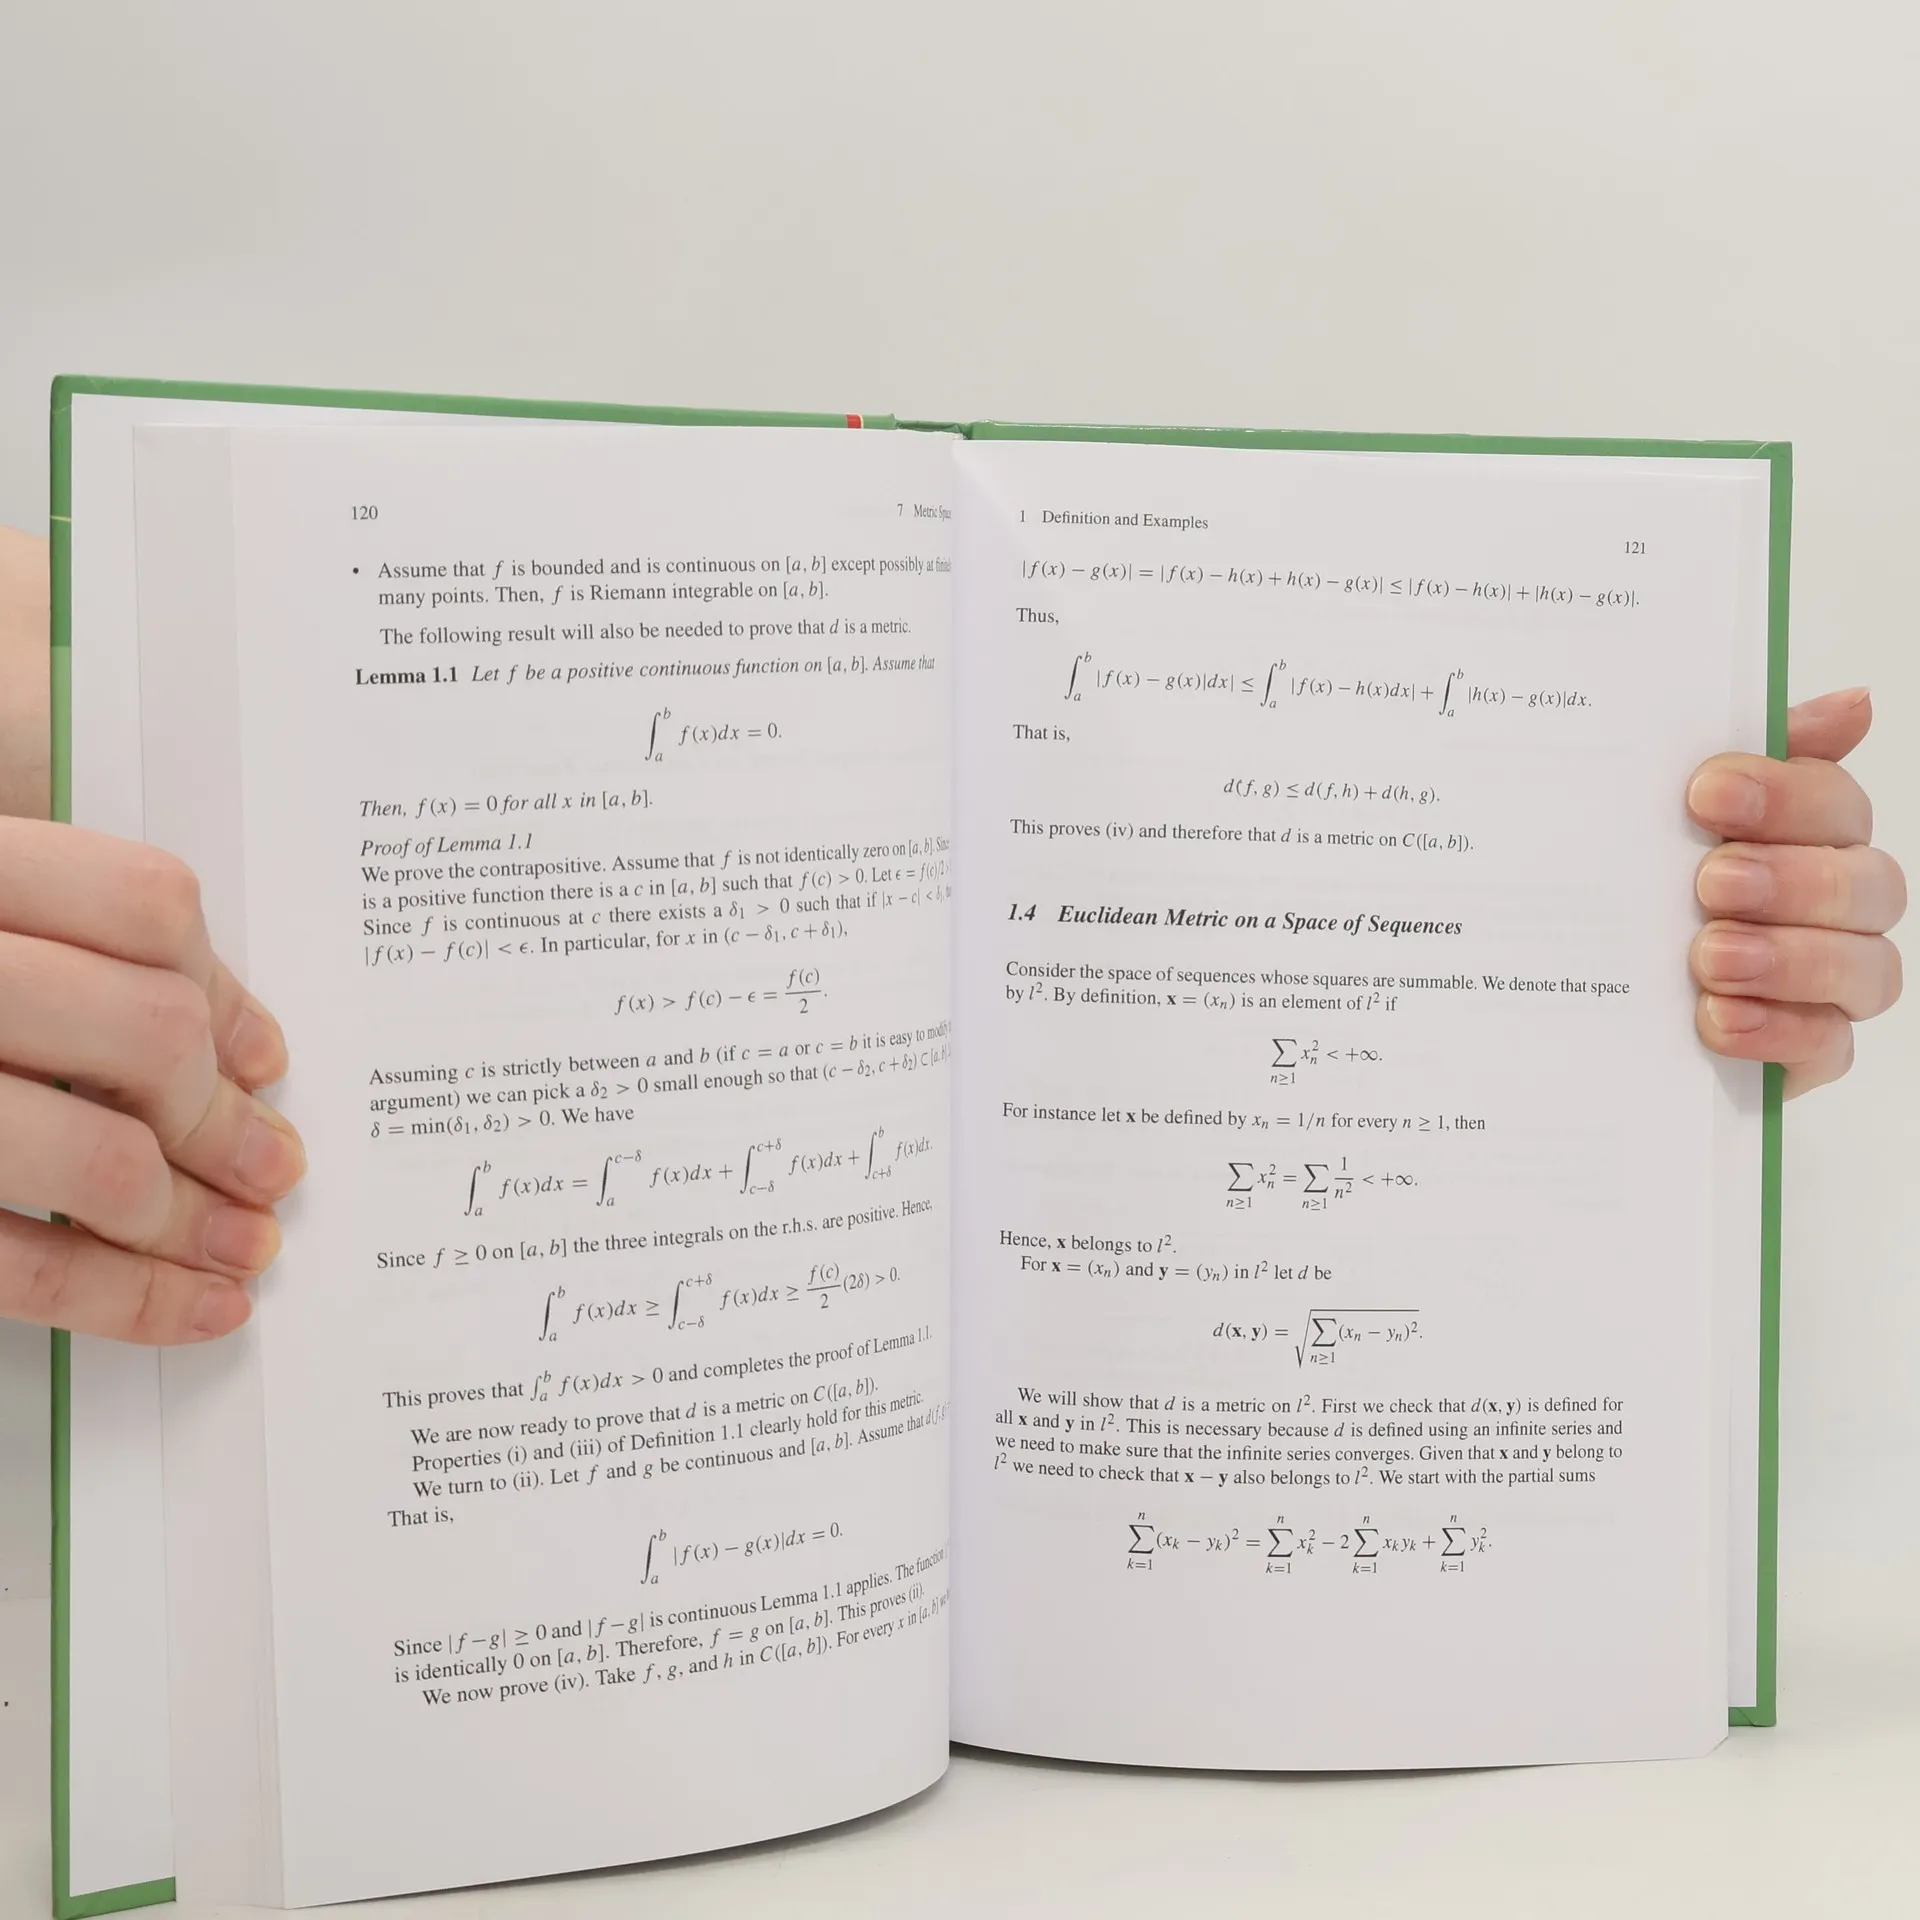 120
7 Metric
• Assume that f is bounded and is continuous on [a, b] except possibly at
many points. Then, f is Riemann integrable on [a, b].
The following result will also be needed to prove that d is a metric.
Lemma 1.1 Let f be a positive continuous function on [a, b]. Assume that
∫_a^b f(x)dx = 0.
Then, f(x) = 0 for all x in [a, b].
Proof of Lemma 1.1
We prove the contrapositive. Assume that f is not identically zero on [a, b].
is a positive function there is a c in [a, b] such that f(c) > 0. Let ϵ = f(c)/2 >
Since f is continuous at c there exists a δ₁ > 0 such that if |x − c| < δ₁,
|f(x) − f(c)| < ϵ. In particular, for x in (c − δ₁, c + δ₁),
f(x) > f(c) − ϵ = f(c)/2.
Assuming c is strictly between a and b (if c = a or c = b it is easy to modify
argument) we can pick a δ₂ > 0 small enough so that (c − δ₂, c + δ₂) ⊂ [a, b]
δ = min(δ₁, δ₂) > 0. We have
∫_a^b f(x)dx = ∫_a^{c−δ} f(x)dx + ∫_{c−δ}^{c+δ} f(x)dx + ∫_{c+δ}^b f(x)dx.
Since f ≥ 0 on [a, b] the three integrals on the r.h.s. are positive. Hence,
∫_a^b f(x)dx ≥ ∫_{c−δ}^{c+δ} f(x)dx ≥ f(c)/2 (2δ) > 0.
This proves that ∫_a^b f(x)dx > 0 and completes the proof of Lemma 1.1.
We are now ready to prove that d is a metric on C([a, b]).
Properties (i) and (iii) of Definition 1.1 clearly hold for this metric.
We turn to (ii). Let f and g be continuous and [a, b]. Assume that d(f, g)
That is,
∫_a^b |f(x) − g(x)|dx = 0.
Since |f − g| ≥ 0 and |f − g| is continuous Lemma 1.1 applies. The function
is identically 0 on [a, b]. Therefore, f = g on [a, b]. This proves (ii).
We now prove (iv). Take f, g, and h in C([a, b]). For every x in [a, b]
1 Definition and Examples
121
|f(x) − g(x)| = |f(x) − h(x) + h(x) − g(x)| ≤ |f(x) − h(x)| + |h(x) − g(x)|.
Thus,
∫_a^b |f(x) − g(x)|dx| ≤ ∫_a^b |f(x) − h(x)dx| + ∫_a^b |h(x) − g(x)|dx.
That is,
d(f, g) ≤ d(f, h) + d(h, g).
This proves (iv) and therefore that d is a metric on C([a, b]).
1.4 Euclidean Metric on a Space of Sequences
Consider the space of sequences whose squares are summable. We denote that space
by l². By definition, x = (xₙ) is an element of l² if
∑_{n≥1} xₙ² < +∞.
For instance let x be defined by xₙ = 1/n for every n ≥ 1, then
∑_{n≥1} xₙ² = ∑_{n≥1} 1/n² < +∞.
Hence, x belongs to l².
For x = (xₙ) and y = (yₙ) in l² let d be
d(x, y) = √(∑_{n≥1} (xₙ − yₙ)².
We will show that d is a metric on l². First we check that d(x, y) is defined for
all x and y in l². This is necessary because d is defined using an infinite series and
we need to make sure that the infinite series converges. Given that x and y belong to
l² we need to check that x − y also belongs to l². We start with the partial sums
∑_{k=1}^n (xₖ − yₖ)² = ∑_{k=1}^n xₖ² − 2 ∑_{k=1}^n xₖyₖ + ∑_{k=1}^n yₖ².